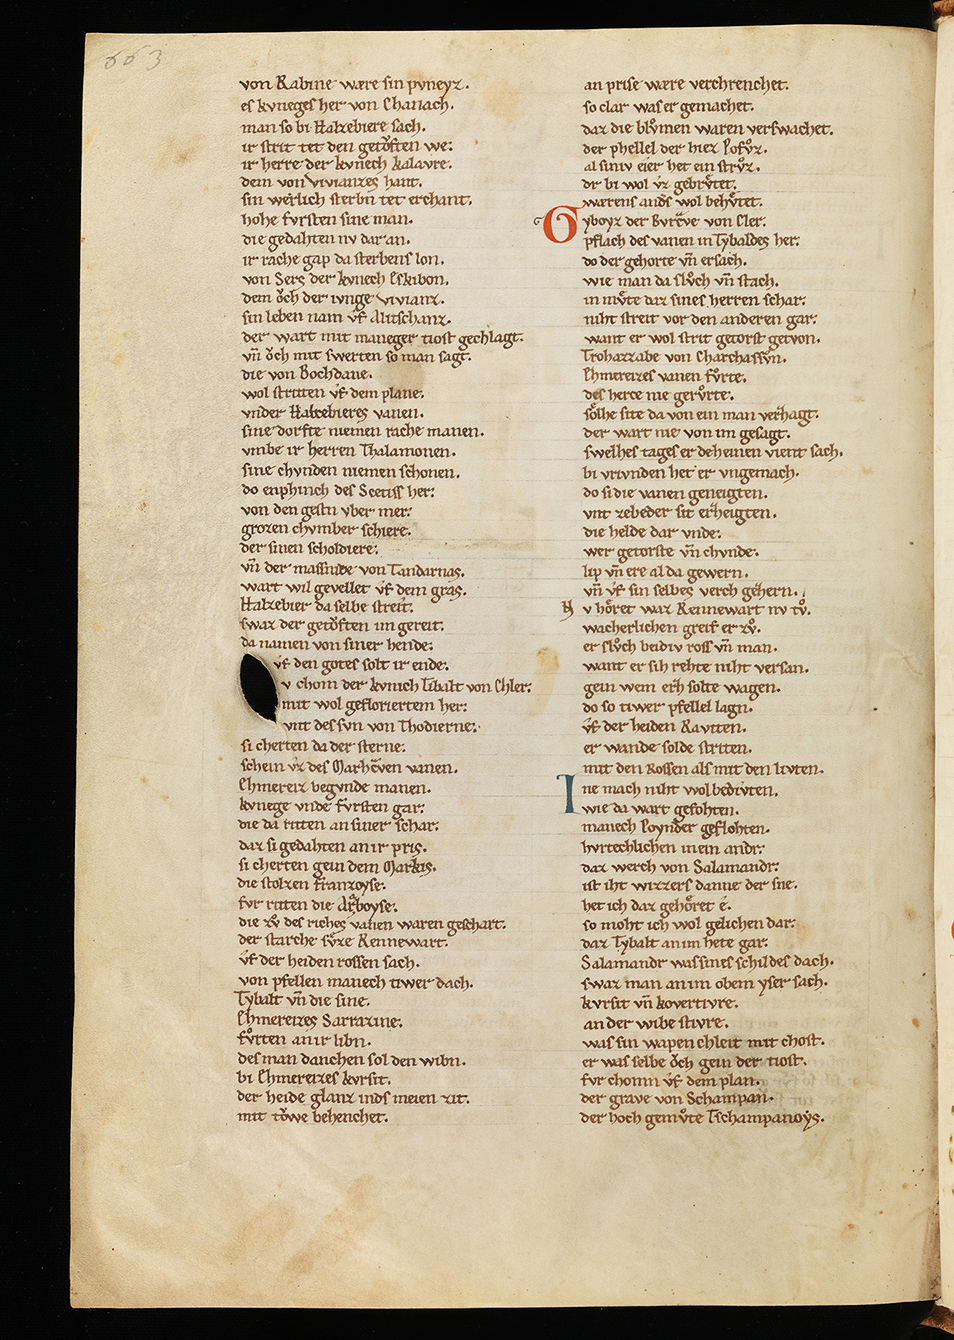 663
von Rabine wære sin pvneyz.
es kvneges her von Chanach.
man so bi Halzebiere sach.
ir strit tet den getoͮften we:
ir herre der kvnech kalavre.
dem von Vivianzes hant.
sin werlich sterbn tet erchant.
hohe fvrsten sine man.
die gedahten nv dar an.
ir rache gap da sterbens lon.
von Sers der kvnech Eskibon.
dem oͮch der ivnge Vivianz.
sin leben nam vf Alitschanz.
der wart mit maneger tiost gechlagt.
vn̄ oͮch mit swerten so man sagt.
die von Bochdane.
wol striten vf dem plane.
vnder Halzebieres vanen.
sine dorfte niemen rache manen.
vmbe ir herren Thalamonen.
sine chvnden niemen schonen.
do enphinch des Sceriss her:
von den gestn vber mer:
grozen chvmber schiere.
der sinen scholdiere:
vn̄ der massnide von Tandarnas.
wart wil gevellet vf dem gras.
Halzebier da selbe streit.
swaz der getoͮften im gereit.
da namen von siner hende:
vf den gotes solt ir ende.
v chom der kvnich Tibalt von Chler:
mit wol gefloriertem her:
vnt des svn von Thodierne.
si cherten da der sterne.
schein vz des Marheven vanen.
Ehmereiz begvnde manen.
kvnege vnde fvrsten gar:
die da riten an siner schar:
daz si gedahten an ir pris.
si cherten gein dem Markis.
die stolzen franzoyse.
fvr riten die Arboyse.
die zv des riches vanen waren geschart.
der starche svze Rennewart.
vf der heiden rossen sach.
von pfellen manech tiwer dach.
Tybalt vn̄ die sine.
Ehmereizes Sarrazine.
fvͦrten an ir libn.
des man danchen sol den wibn.
bi Ehmereizes kvrsit.
der heide glanz inds meien zit.
mit toͮwe behenchet.
an prise wære verchrenchet.
so clar was er gemachet.
daz die blvͦmen waren verswachet.
der phellel der hiez Pofvͦz.
al siniv eier het ein strvͦz.
dr bi wol vz gebrvͤtet.
wærens ands wol behvͤtet.
Gyboyz der Bvrcͣve von Cler:
pflach des vanen in Tybaldes her:
do der gehorte vn̄ ersach.
wie man da slvͦch vn̄ stach.
in mvͤte daz sines herren schar:
niht streit vor den anderen gar:
want er wol strit getorst getvon.
Trohazzabe von Charchassvn.
Ehmereizes vanen fvͦrte.
des herce nie gervͦrte.
soͤlhe site da von ein man verzhagt.
der wart nie von im gesagt.
swelhes tages er deheinen vient sach.
bi vrivnden het er vngemach.
do si die vanen geneigten.
vnt zebeder sit erzheigten.
die helde dar vnde:
wer getorste vn̄ chvnde:
lip vn̄ ere al da gewern.
vn̄ vf sin selbes verch gehern.
v hoͤret waz Rennewart nv tvͦ.
wacherlichen greif er zvͦ.
er slvͦch beidiv ross vn̄ man.
want er sih rehte niht versan.
gein wem erh solte wagen.
do so tiwer pfellel lagn.
vf der heiden Raviten.
er wande solde striten.
mit den Rossen als mit den livten.
Ine mach niht wol bedivten.
wie da wart gefohten.
manech Poynder geflohten.
hvrtechlichen in ein andr:
daz werch von Salamandr:
ist iht wizzers danne der sne.
het ich daz gehoͤret e.
so moht ich wol gelichen dar:
daz Tybalt an im hete gar:
Salamandr was sines schildes dach.
swaz man an im obem yser sach.
kvrsit vn̄ kovertivre.
an der wibe stivre.
was sin wapen chleit mit chost.
er was selbe oͮch gein der tiost.
fvr chomn vf dem plan.
der grave von Schampan.
der hoch gemvͦte Tschampanoys.